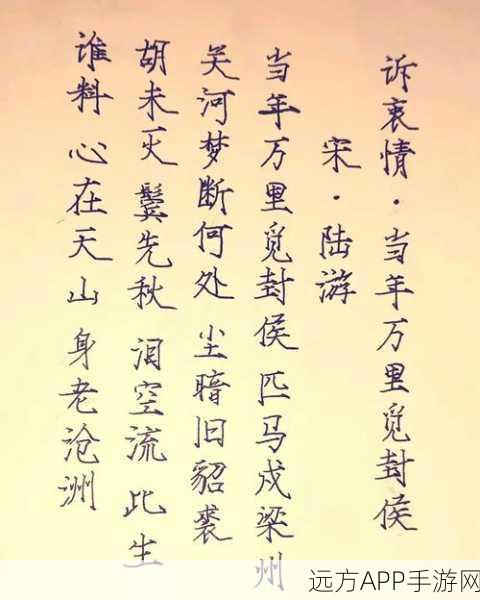 诉衷情·当年万里觅封侯
宋·陆游
当年万里觅封侯 匹马戍梁州
关河梦断何处 尘暗旧貂裘
胡未灭 鬓先秋 泪空流 此生
谁料 心在天山 身老沧洲
远方APP手游网